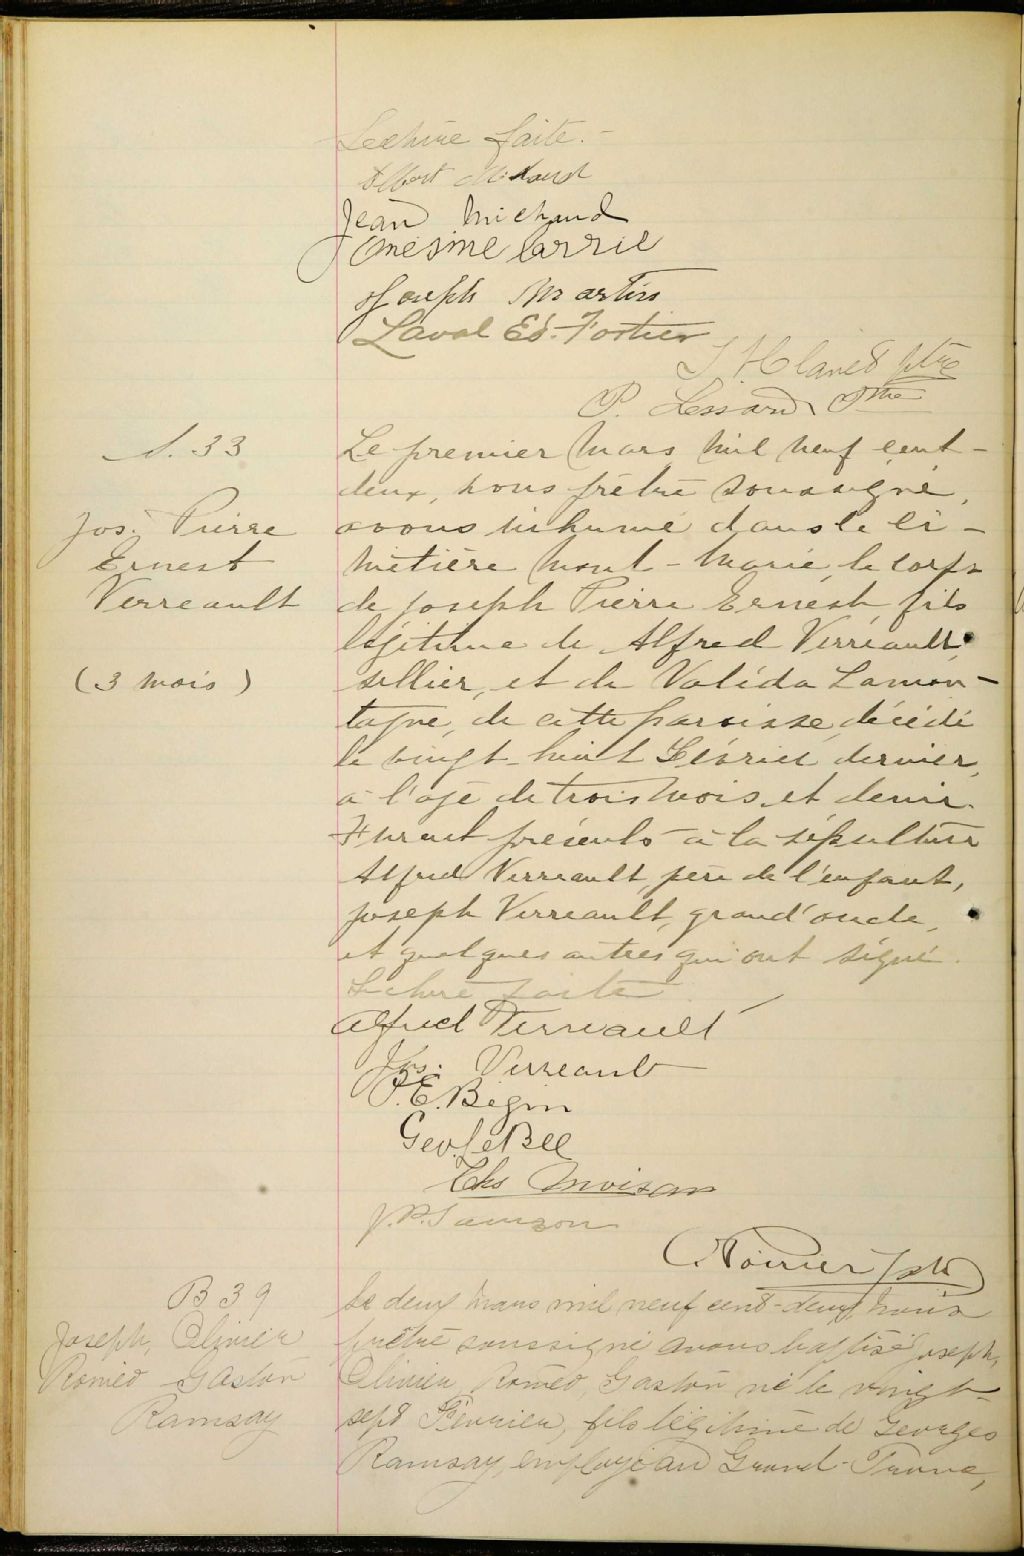 Lecture faite. -
Albert Michaud
Jean Michaud
Onésime Carrie
Joseph Martin
Laval Ed. Fortier
ptre
P. Lessard Ptre
S. 33
Jos. Pierre
Ernest
Verreault
(3 mois)
Le premier Mars mil neuf cent-
deux, nous prêtre soussigné,
avons inhumé dans le ci-
metière Mont-Marie, le corps
de Joseph Pierre Ernest fils
légitime de Alfred Verreault,
sellier, et de Valéda Lamon-
tagne, de cette paroisse, décédé
le vingt-huit Février dernier,
à l'age de trois mois et demi.
Furent présents à la sépulture
Alfred Verreault, père de l'enfant,
Joseph Verreault, grand'oncle,
et quelques autres qui ont signé.
Lecture faite
Alfred Verreault
Jos. Verreault
P. E. Begin
Geo. Le Bel
J. P. Samson
C. Poirier ptre
B 39
Joseph, Olivier
Roméo Gaston
Ramsay
Le deux Mars mil neuf cent-deux, nous
prêtre soussigné avons baptisé Joseph,
Olivier Roméo, Gaston né le vingt-
sept Février, fils légitime de Georges
Ramsay, employé au Grand-Tronc,